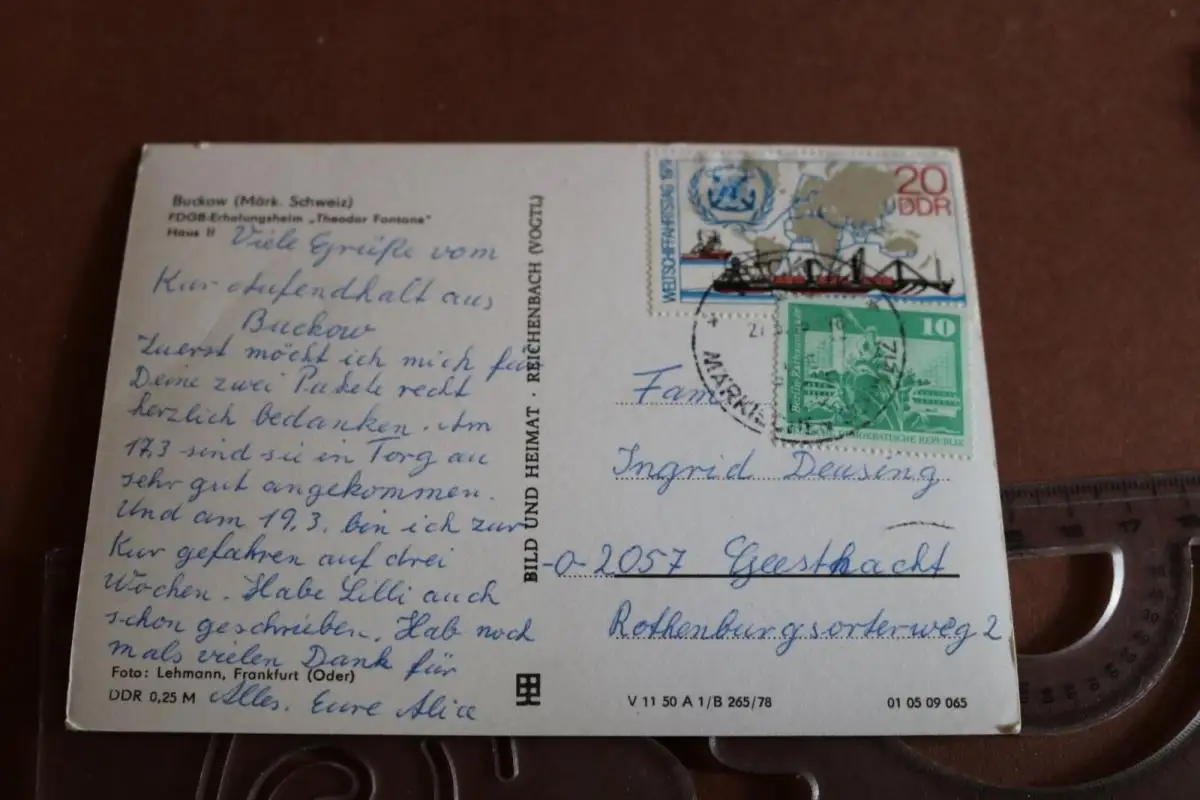 Buckow (Märk. Schweiz)
FDGB-Erholungsheim „Theodor Fontane"
Haus II
Viele Grüße vom
Kur-Aufendhalt aus
Buckow
Zuerst möcht ich mich für
Deine zwei Pakete recht
herzlich bedanken. Am
17.3 sind sie in Torgau
sehr gut angekommen.
Und am 19.3. bin ich zur
Kur gefahren auf drei
Wochen. Habe Lilli auch
schon geschrieben. Hab noch
mals vielen Dank für
Alles. Eure Alice
Foto: Lehmann, Frankfurt (Oder)
DDR 0,25 M
BILD UND HEIMAT · REICHENBACH (VOGTL)
V 11 50 A 1/B 265/78
01 05 09 065
WELTSCHIFFAHRTSTAG 1979
20
DDR
10
DEMOKRATISCHE REPUBLIK
MÄRKI
Fam
Ingrid Deusing
-0-2057 Geesthacht
Rothenburgsorterweg 2
17